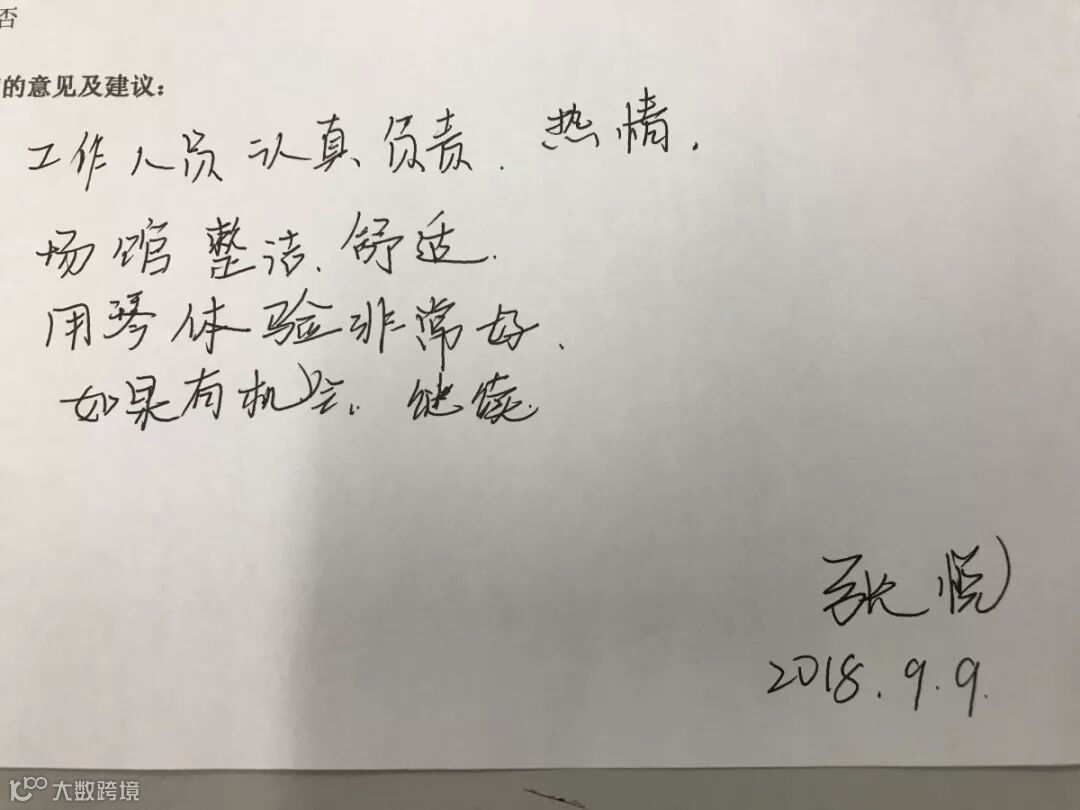 否
的意见及建议：
工作人员认真负责.热情.
场馆整洁.舒适.
用琴体验非常好.
如果有机会.继续.
张悦
2018.9.9.
大数跨境